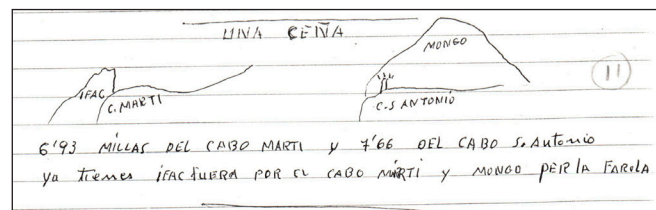 UNA CEÑA
MONGO
11
IFAC
C. MARTI
C. S ANTONIO
6'93 MILLAS DEL CABO MARTI y 7'66 DEL CABO S. Antonio
ya tienes iFAC fUERA POR EL CABO MARTI y MONGO PER LA FAROLA